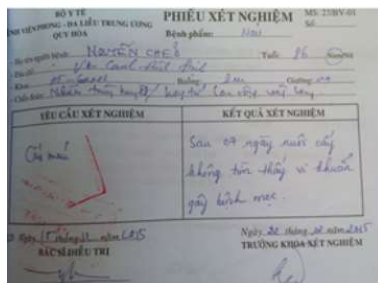 BỘ Y TẾ
BỆNH VIỆN PHONG - DA LIỄU TRUNG ƯƠNG
QUY HÒA
PHIẾU XÉT NGHIỆM
MS: 23/BV-01
Số
Bệnh phẩm:
- Họ tên người bệnh: NGUYỄN CHẾ
Tuổi: 86
Nam/Nữ
- Địa chỉ: Vân Canh
- Khoa
Buồng:
Giường:
- Chẩn đoán: Nhiễm trùng huyết /
YÊU CẦU XÉT NGHIỆM
KẾT QUẢ XÉT NGHIỆM
Cấy máu
Sau 07 ngày nuôi cấy
không tìm thấy vi khuẩn
gây bệnh mọc.
Ngày 15 tháng năm 2015
BÁC SĨ ĐIỀU TRỊ
Ngày 22 tháng năm 2015
TRƯỞNG KHOA XÉT NGHIỆM